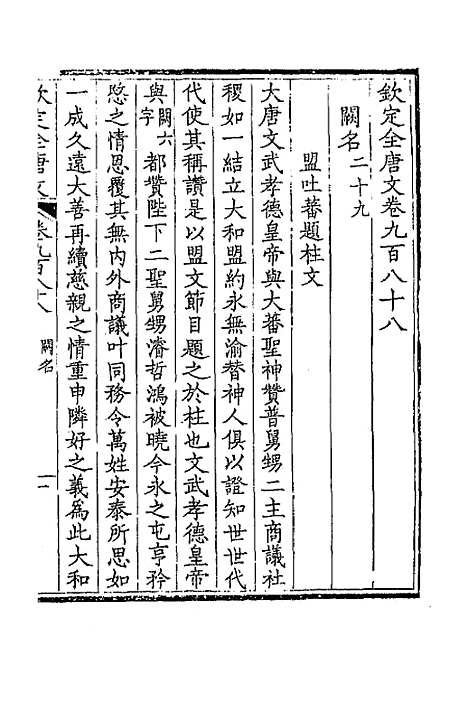 欽定全唐文卷九百八十八
闕名二十九
盟吐蕃題柱文
大唐文武孝德皇帝與大蕃聖神贊普舅甥二主商議社
稷如一結立大和盟約永無渝替神人俱以證知世世代
代使其稱讚是以盟文節目題之於柱也文武孝德皇帝
與闕六字都贊陛下二聖舅甥濬哲鴻被曉今永之屯亨矜
愍之情恩覆其無內外商議叶同務令萬姓安泰所思如
一成久遠大善再續慈親之情重申隣好之義爲此大和
欽定全唐文 卷九百八十八 闕名 一